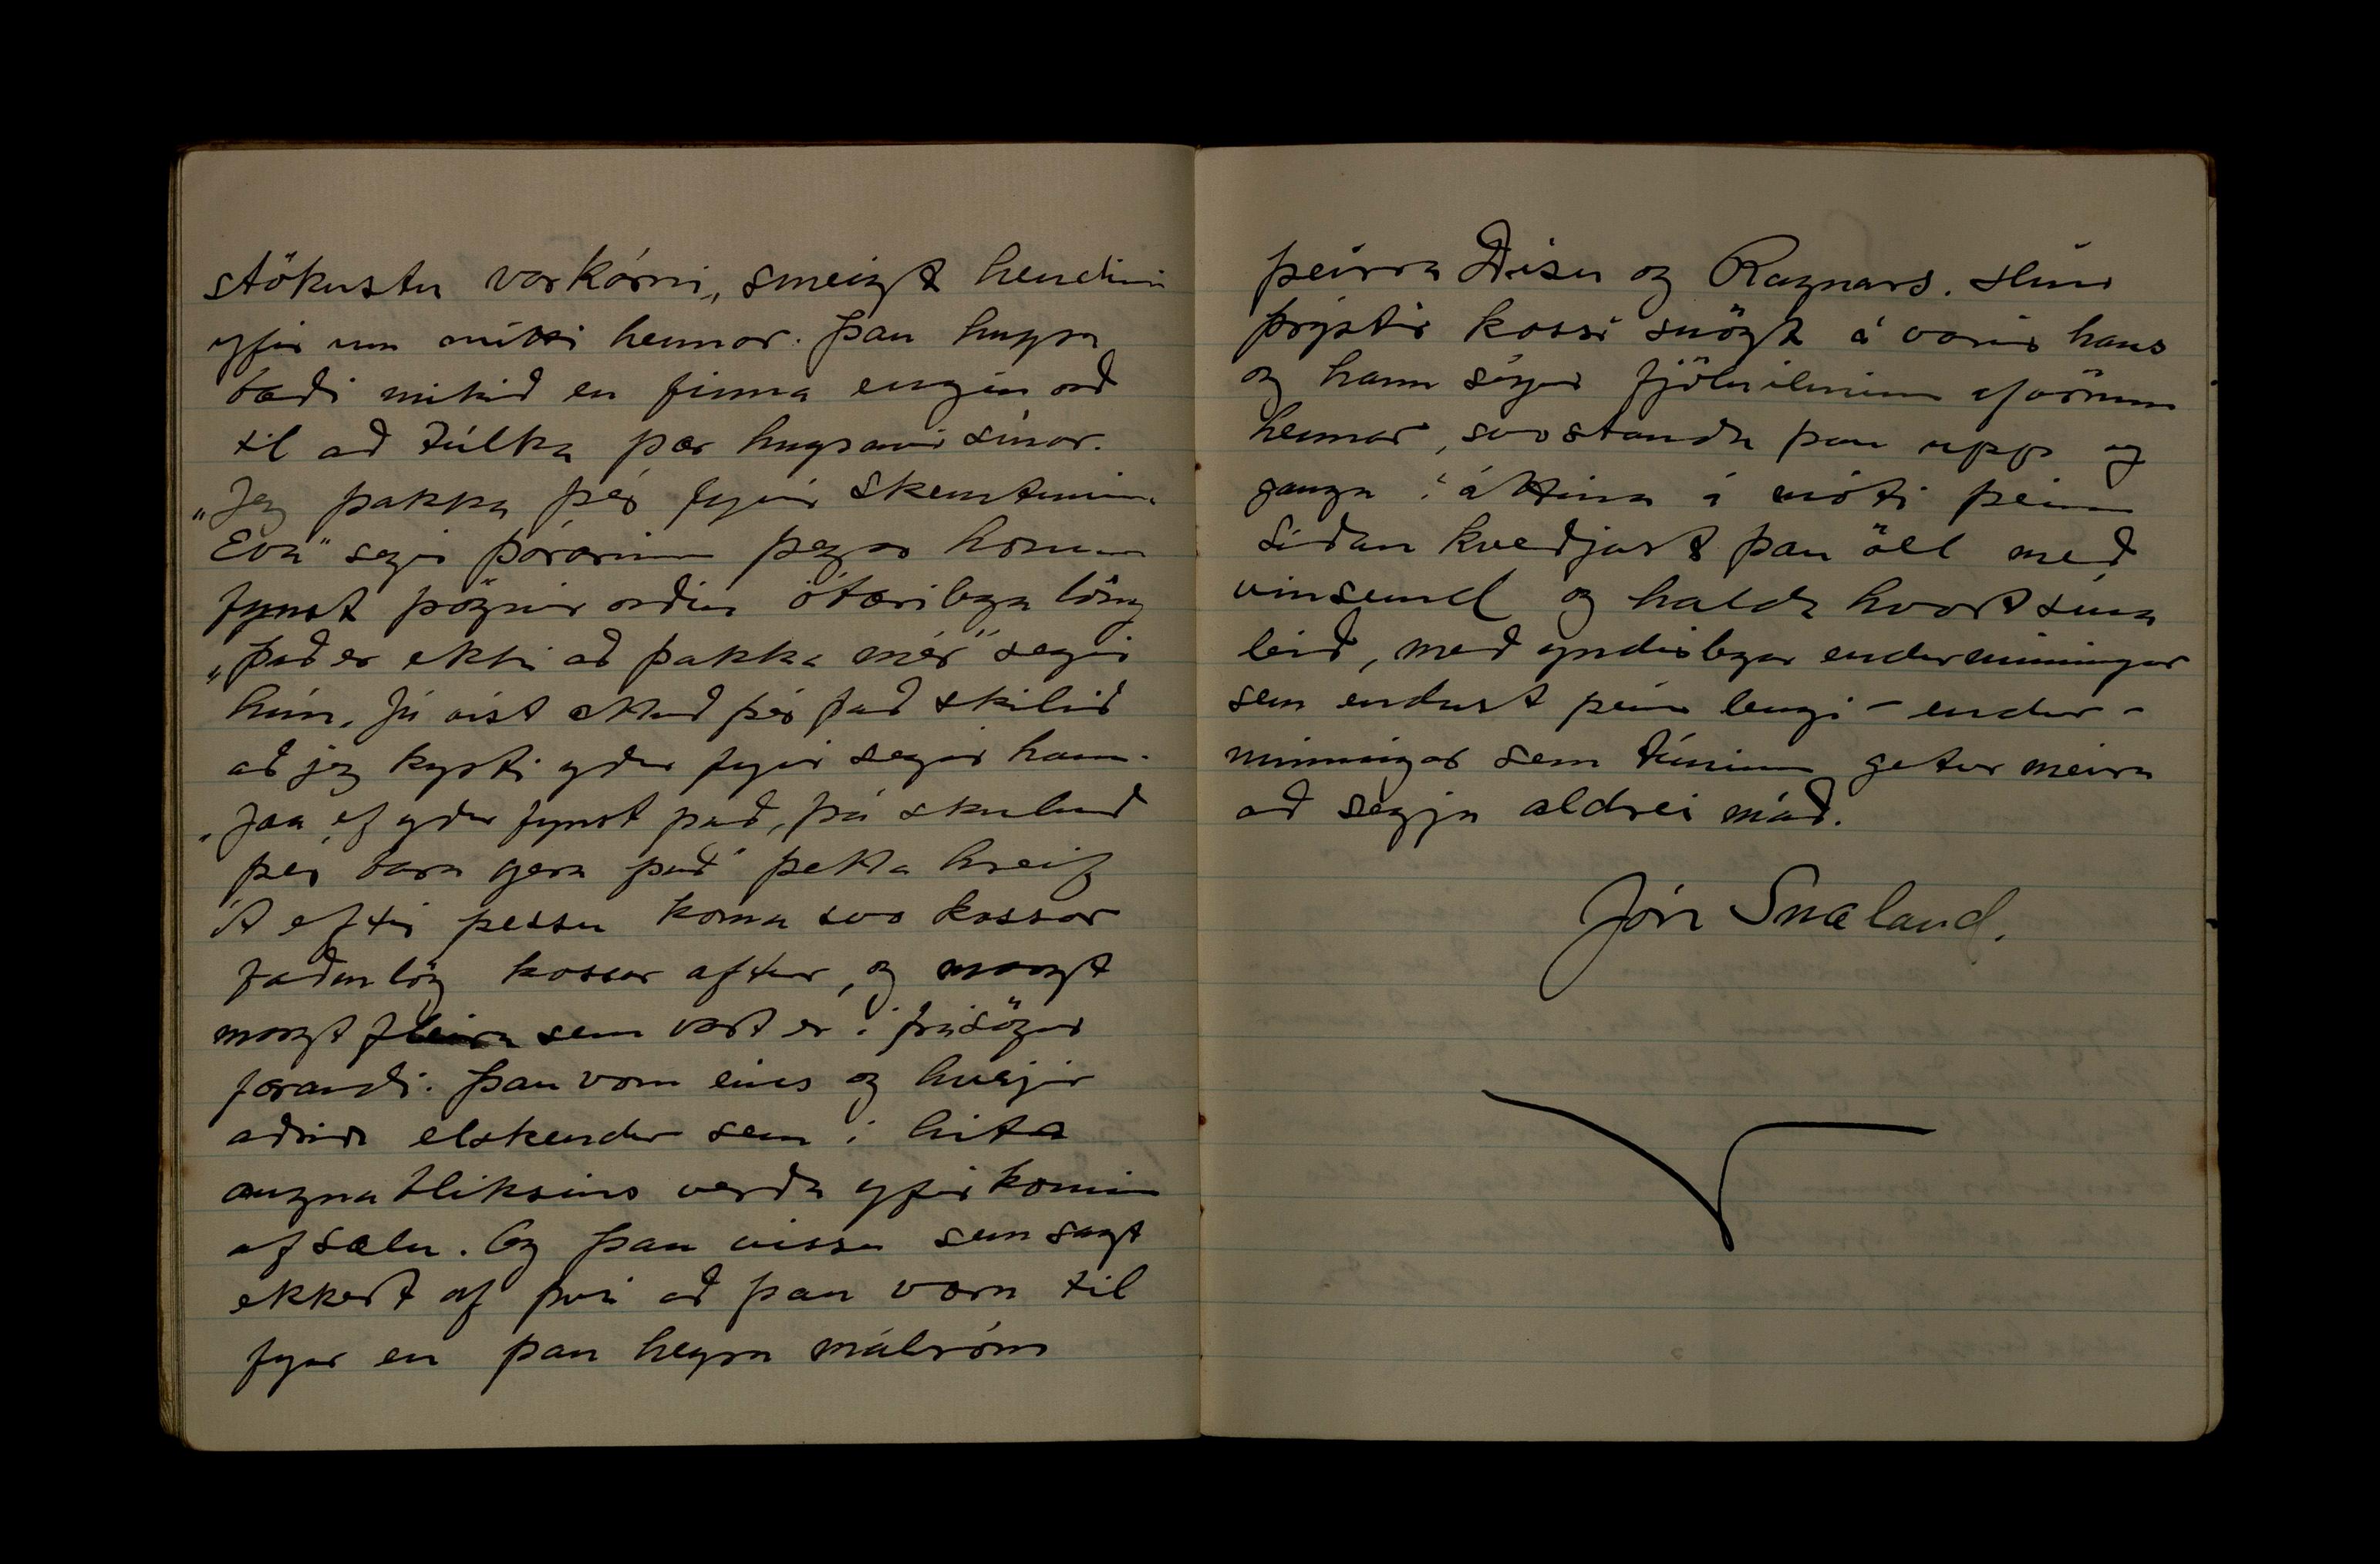 stökustu varkárni, smeigt hendini
yfir um mitti hennar. Þau hugsa
bæði mikið en finna engin orð
til að túlka þær hugsanir sínar.
„Jeg þakka þér fyrir skemtunina
Eva" segir Þórarinn þegar honum
fynst þögnin orðin óbærilega löng
„Það er ekki að þakka mér" segir
hún. Jú víst ættuð þér það skilið
að jeg kysti yður fyrir segir hann.
„Jaa, ef yður fynst það, þá skuluð
þér bara gera það" þetta hreif
Á eftir þessu koma svo kossar
faðmlög kossar aftur, og margt
margt fleira sem vart er í frásögur
færandi. Þau voru eins og hverjir
aðrir elskendur sem í hita
augnabliksins verða yfirkomin
af sælu. Og þau vissu sem sagt
ekkert af því að þau væru til
fyr en þau heyra málróm
þeirra Dísu og Ragnars. Hún
þrýstir kossi snögt á varir hans
og hann sýgur fjöruilminn af vörum
hennar, svo standa þau upp og
ganga í áttina á móti þeim
Síðan kveðjast þau öll með
vinsemd og halda hvort sína
leið, með yndislegar endurminningar
sem endast þeim lengi - endur-
minningar sem tíminn getur meira
að segja aldrei máð.
Jón Snæland.